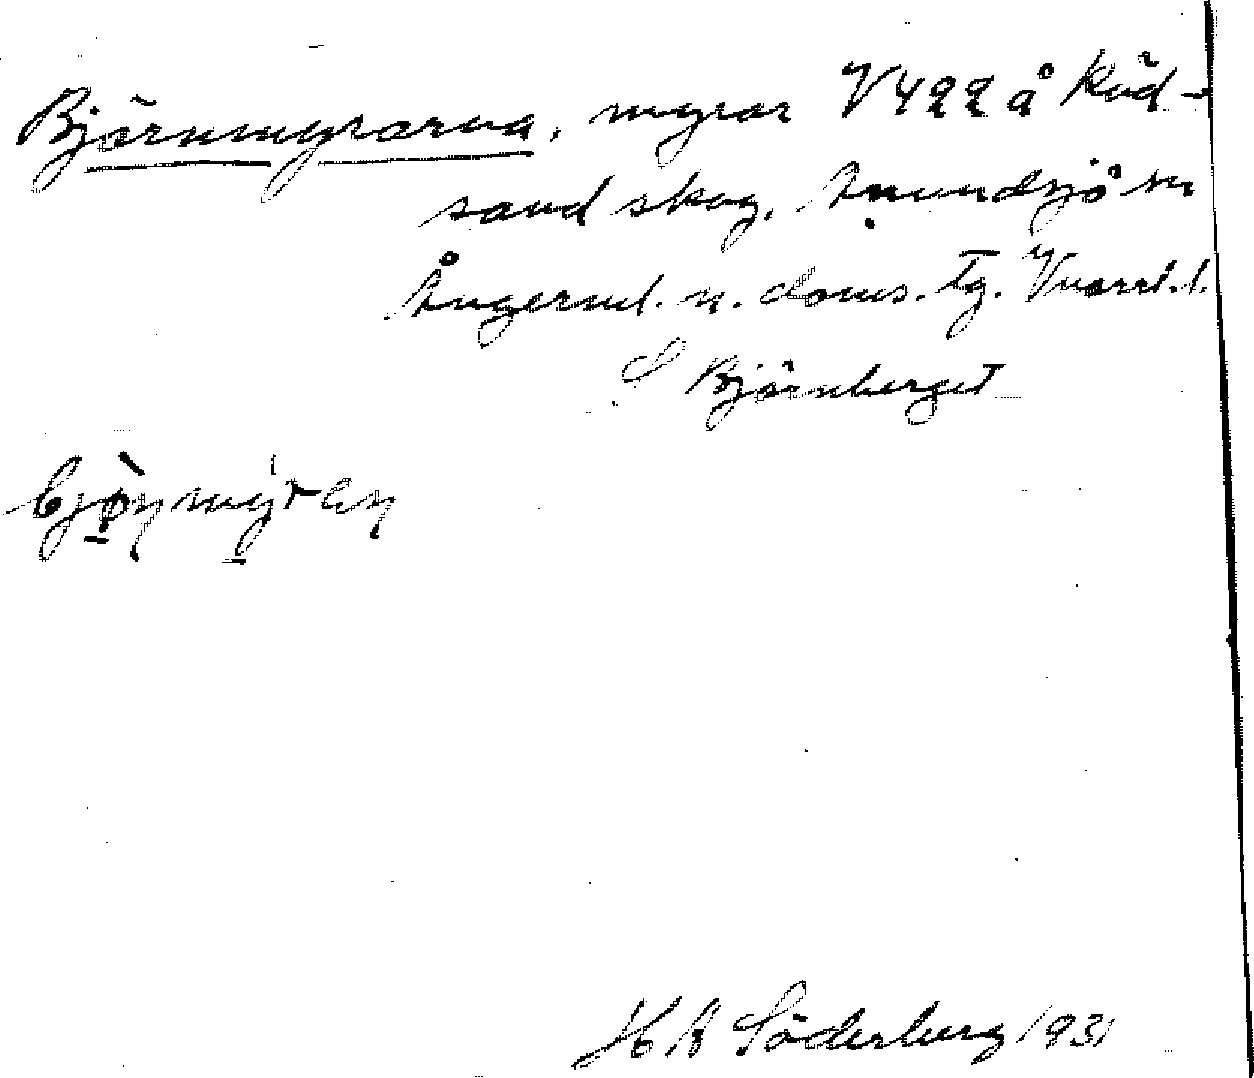 Björnmyrarna, myrar V422 å Röd-
sand skog, Anundsjö sn
Ångerml. n. doms. tg. Vnorrl. l.
S Björnberget
bjøṇmyraṇ
H A Söderberg 1931